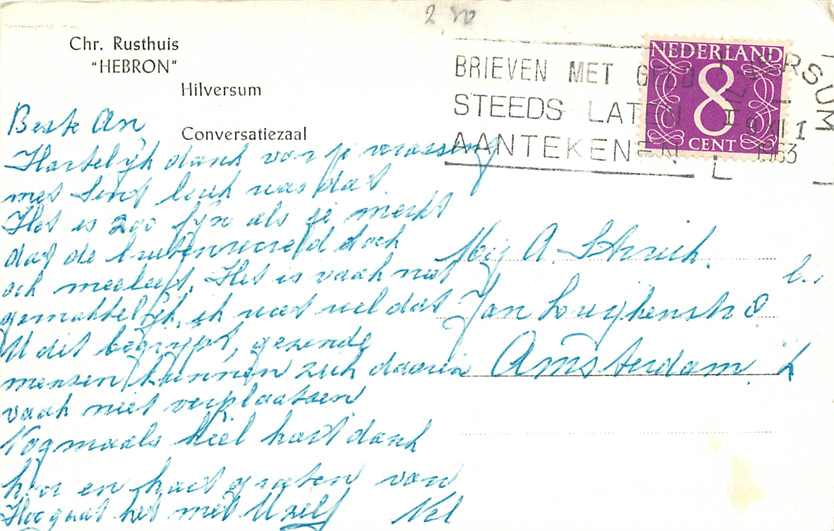 2,50
Chr. Rusthuis
"HEBRON"
Hilversum
Conversatiezaal
BRIEVEN MET GELD
STEEDS LATEN
AANTEKENEN
NEDERLAND
8
CENT
1963
Beste An
Hartelijk dank voor je verassing
met Sint leuk was dat.
Het is zoo fijn als je merkt
dat de buitenwereld toch
ook meeleeft. Het is vaak niet
gemakkelijk, ik weet wel dat
U dit begrijpt, gezonde
mensen kunnen zich daarin
vaak niet verplaatsen
Nogmaals heel hart dank
hoor en hart groeten van
Hoe gaat het met U zelf Nel
Mej A.
Jan Luijkenstr 8
Amsterdam